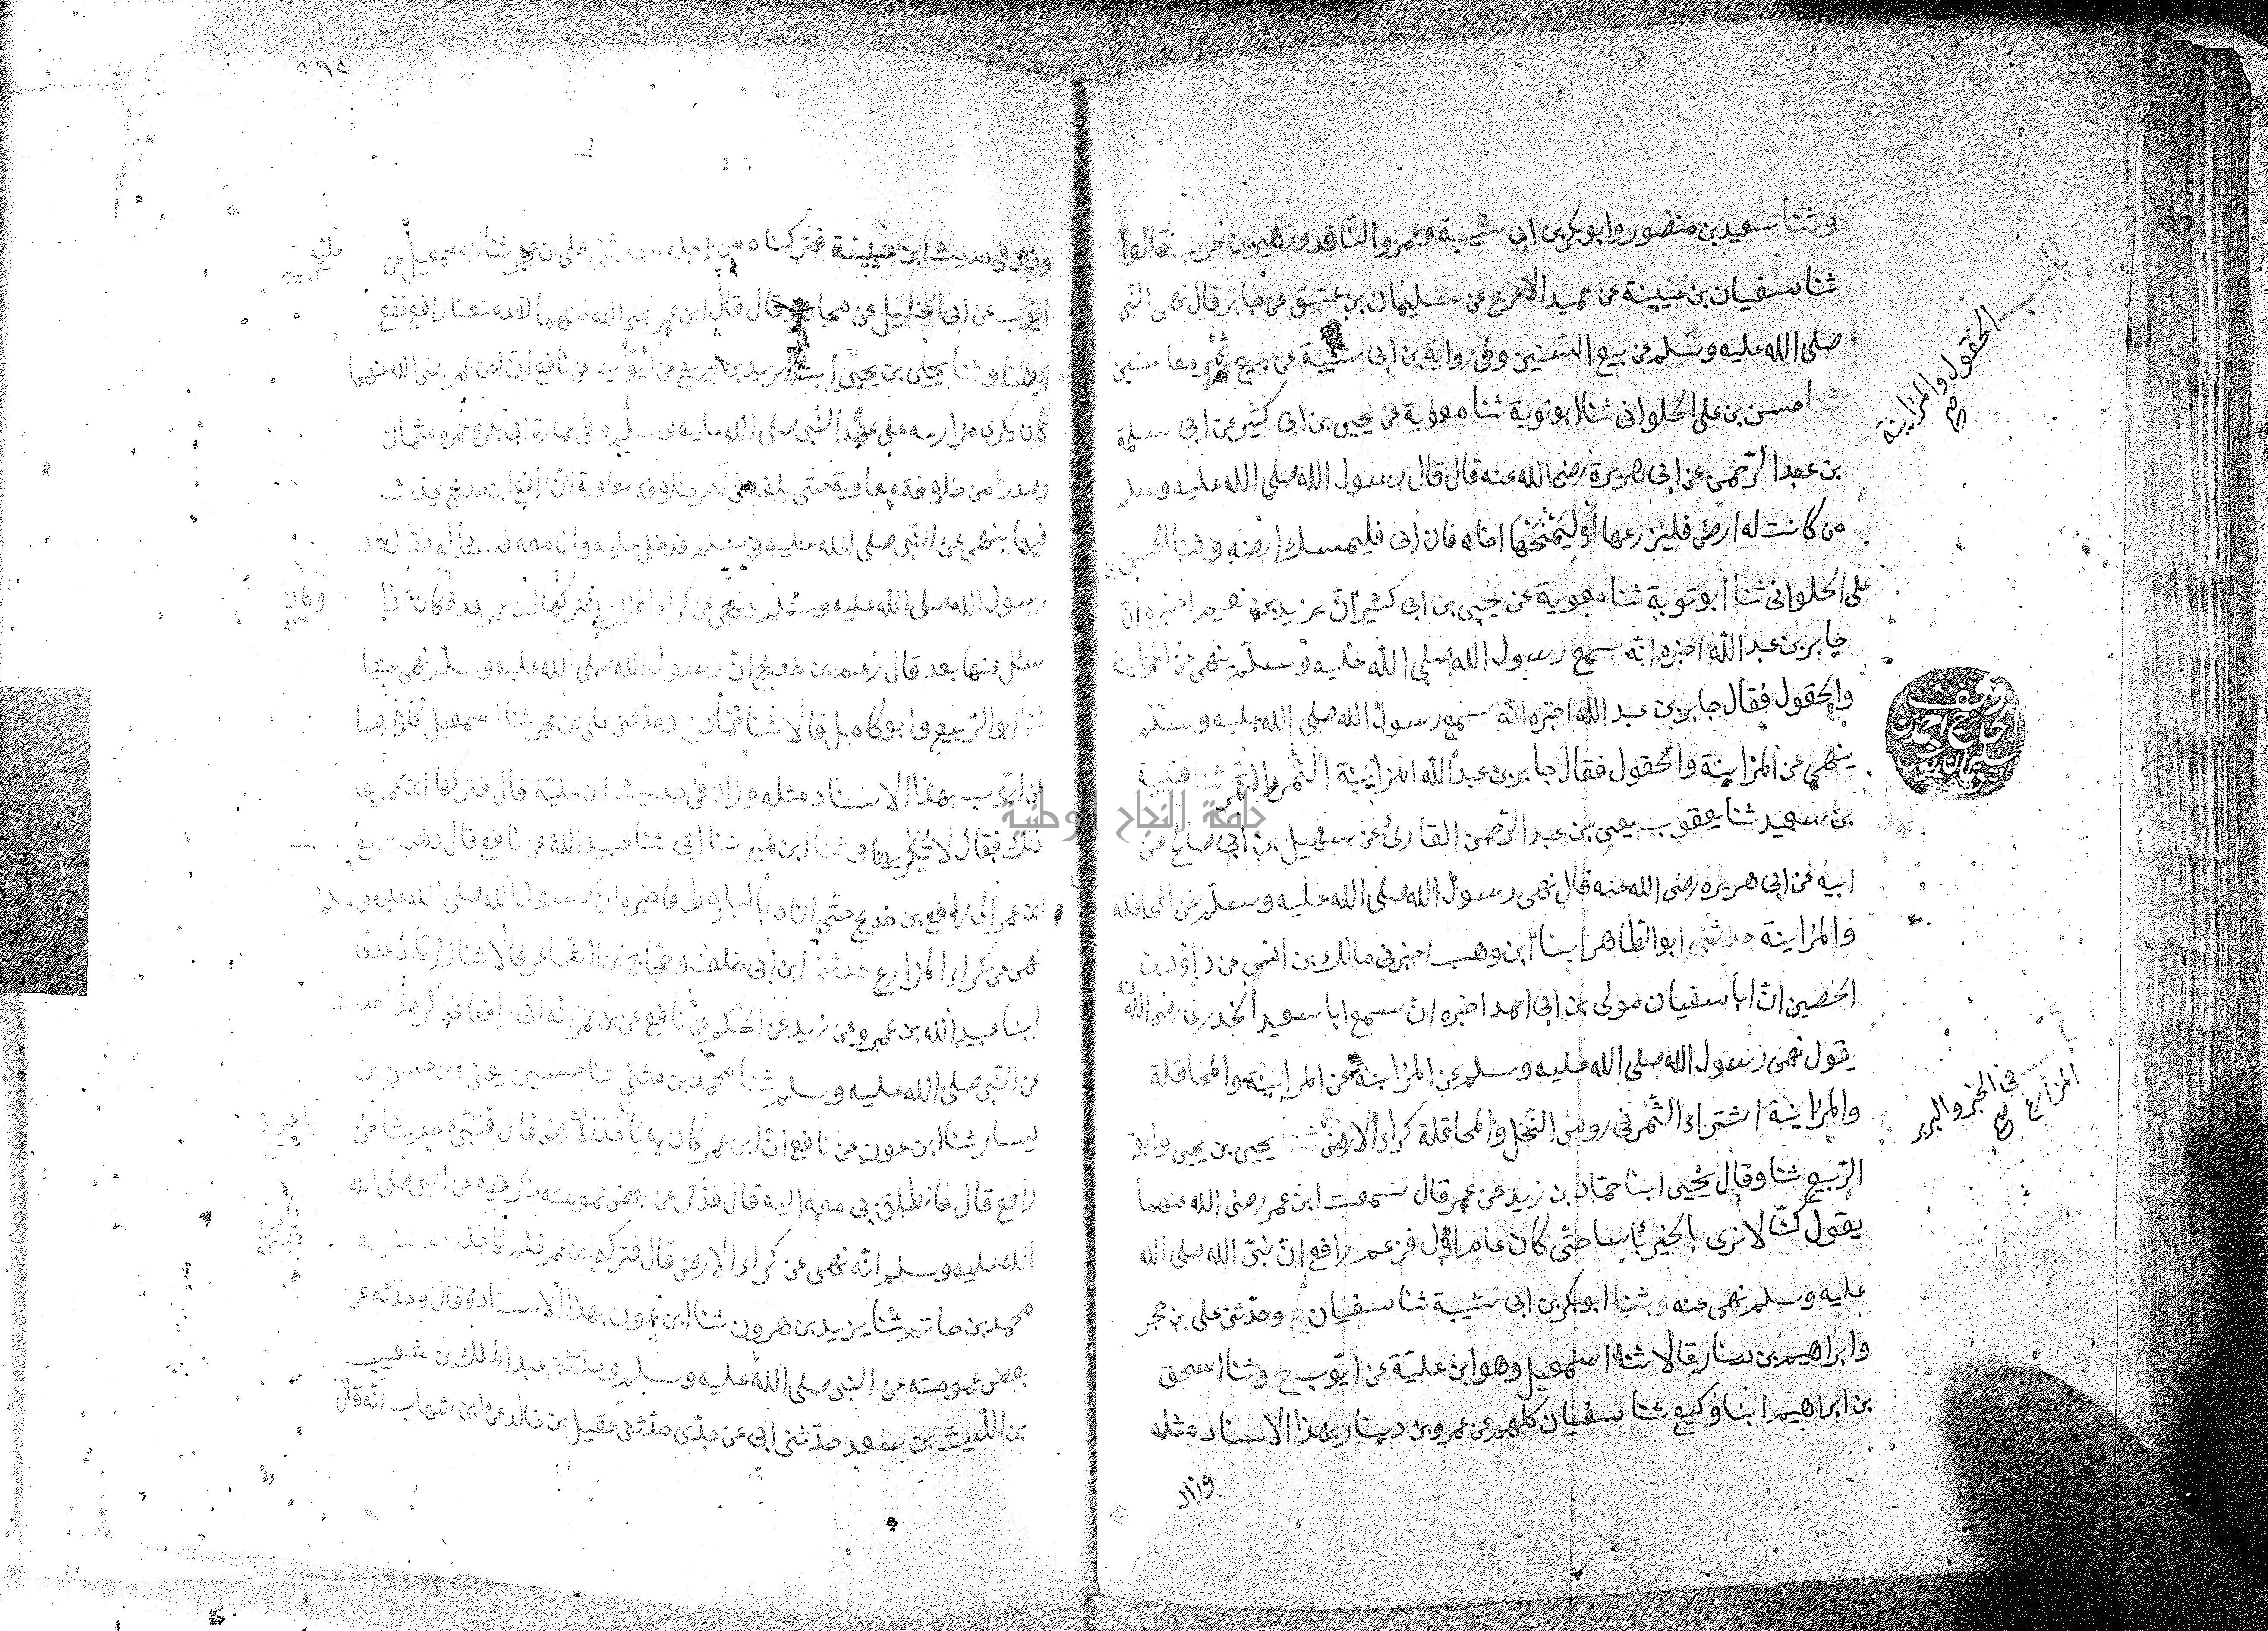 وثنا سعيد بن منصور وابو بكر بن ابى شيبة وعمرو الناقد وزهير بن حرب قالوا
ثنا سفيان بن عيينة عن حميد الاعرج عن سليمان بن عتيق عن جابر قال نهى النبى
صلى الله عليه وسلم عن بيع السنين وفى رواية بن ابى شيبة عن بيع ثمر معا سنين
ثنا حسن بن على الحلوانى ثنا ابو توبة ثنا معوية عن يحيى بن ابى كثير عن ابى سلمة
بن عبد الرحمن عن ابى هريرة رضى الله عنه قال قال رسول الله صلى الله عليه وسلم
من كانت له ارض فليزرعها أو ليَمْنَحْها اخاه فان ابى فليمسك ارضه وثنا الحسن بن
على الحلوانى ثنا ابو توبة ثنا معوية عن يحيى بن ابى كثير انّ يزيد بن نعيم اخبره انّ
جابر بن عبد الله اخبره انّه سمع رسول الله صلى الله عليه وسلم ينهى عن المزابنة
والحقول فقال جابر بن عبد الله اخبره انّه سمع رسول الله صلى الله عليه وسلم
ينهى عن المزابنة والحقول فقال جابر بن عبد الله المزابنة الثمر بالتمر ثنا قتيبة
بن سعيد ثنا يعقوب يعنى بن عبد الرحمن القارئ عن سهيل بن أبى صالح عن
ابيه عن ابى هريره رضى الله عنه قال نهى رسول الله صلى الله عليه وسلم عن المحاقلة
والمزابنة حدثنى ابو الطاهر ابنا ابن وهب اخبرنى مالك بن انس عن داؤد بن
الحصين انّ ابا سفيان مولى بن ابى احمد اخبره انّ سمع ابا سعيد الخدرى رضى الله عنه
يقول نهى رسول الله صلى الله عليه وسلم عن المزابنة عن المزابنة والمحاقلة
والمزابنة اشتراء الثّمر فى روس النّخل والمحاقلة كراء الارض ثنا يحيى بن يحيى وابو
الربيع ثنا وقال يحيى ابنا حمّاد بن زيد عن عمر قال سمعت ابن عمر رضى الله عنهما
يقول كنّا لا نرى بالخبر بأسا حتّى كان عام اوّل فزعم رافع انّ نبىّ الله صلى الله
عليه وسلم نهى عنه وثنا ابو بكر بن ابى شيبة ثنا سفيان ح وحدّثنى على بن حجر
وابراهيم بن دينار قالا ثنا اسمعيل وهو ابن عليّة عن ايّوب ح وثنا اسحق
بن ابراهيم ابنا وكيع ثنا سفيان كلهم عن عمرو بن دينار بهذا الاسناد مثله
وزاد
باب
الحقول والمزابنة
صح
وقف
الحاج احمد بن
باب
فى الخبر والبر
المزارع
صح
٢٩٢
وزاد فى حديث ابن عيينة فتركناه من اجله وحدثنى على بن حجر ثنا اسمعيل عن
ايوب عن ابى الخليل عن مجاهد قال قال ابن عمر رضى الله عنهما لقد منعنا رافع نفع
ارضنا وثنا يحيى بن يحيى ابنا يزيد بن زريع عن ايّوب عن نافع انّ ابن عمر رضى الله عنهما
كان يكرى مزارعه على عهد النّبى صلى الله عليه وسلم وفى عمارة ابى بكر وعمر وعثمان
وصدرا من خلافة معاوية حتّى بلغه فى آخر خلافة معاوية انّ رافع ابن خديج يحدّث
فيها بنهى عن النّبى صلى الله عليه وسلم فدخل عليه وانا معه فسئاله فقال كان
رسول الله صلى الله عليه وسلم ينهى عن كراء المزارع فتركها ابن عمر بعد فكان اذا
سئل عنها بعد قال زعم بن خديج انّ رسول الله صلى الله عليه وسلّم نهى عنها
ثنا ابو الرّبيع وابو كامل قالا ثنا حمّاد ح وحدّثنى على بن حجر ثنا اسمعيل كلاهما
عن ايّوب بهذا الاسناد مثله وزاد فى حديث ابن عليّة قال فتركها ابن عمر بعد
ذلك فقال لا يُكْريها وثنا ابن نمير ثنا ابى ثنا عبيد الله عن نافع قال ذهبت مع
ابن عمر الى رافع بن خديج حتّى اتاه بالبلاط فاخبره انّ رسول الله صلى الله عليه وسلم
نهى عن كراء المزارع حدثنى ابن ابى خلف وحجّاج بن الشّاعر قالا ثنا زكريّا بن عدى
ابنا عبيد الله بن عمرو عن زيد عن الحكم عن نافع عن بن عمر انّه اتى رافعا فذكر هذا الحديث
عن النّبى صلى الله عليه وسلم ثنا محمد بن مثنّى ثنا حسين يعنى ابن حسن بن
يسار ثنا ابن عون عن نافع انّ ابن عمر كان يه يأخذ الارض قال فنبّئ حديثا عن
رافع قال فانطلق بى معه اليه قال فذكر عن بعض عمومته ذكر فيه عن النبى صلى الله
الله عليه وسلم انّه نهى عن كراء الارض قال فتركه ابن عمر فلم يأخذه
محمد بن حاتم ثنا يزيد بن هرون ثنا ابن عون بهذا الاسناد وقال وحدّثه عن
بعض عمومته عن النبى صلى الله عليه وسلم وحدثنى عبد الملك بن شعيب
بن اللّيث بن سعد حدّثنى ابى عن جدّى حدّثنى عقيل بن خالد عن ابن شهاب انّه قال
عليّه
وكان
جامعة النجاح الوطنية